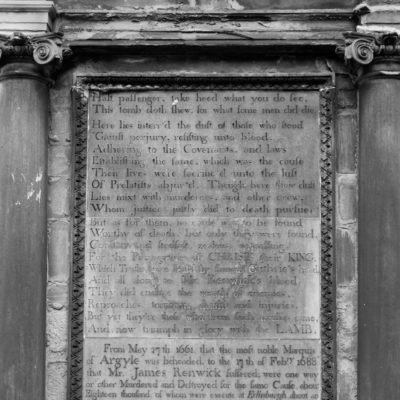 Halt passenger, take heed what you do see,
This tomb doth shew, for what some men did die.
Here lies interr'd the dust of those who stood
'Gainst perjury, resisting unto blood,
Adhering to the Covenants, and laws
Establishing the same, which was the cause
Their lives were sacrific'd unto the lust
Of Prelatists abjur'd. Though here their dust
Lies mixt with murderers, and other crew,
Whom justice justly did to death pursue;
But as for them, no cause was to be found
Worthy of death, but only they were found,
For the Prerogatives of CHRIST their KING.
Which Truths were seal'd by famous Guthrie's head,
And all along to Mr. Renwick's blood.
They did endure the wrath of enemies,
Reproaches, torments, deaths and injuries.
But yet they're those who from such
And now triumph in glory with the LAMB.
From May 27th 1661, that the most noble Marquis
of Argyle was beheaded, to the 17th of Febry. 1688
that Mr. James Renwick suffered; were one way
or other Murdered and Destroyed for the same Cause about
Eighteen thousand, of whom were execute at Edinburgh about an